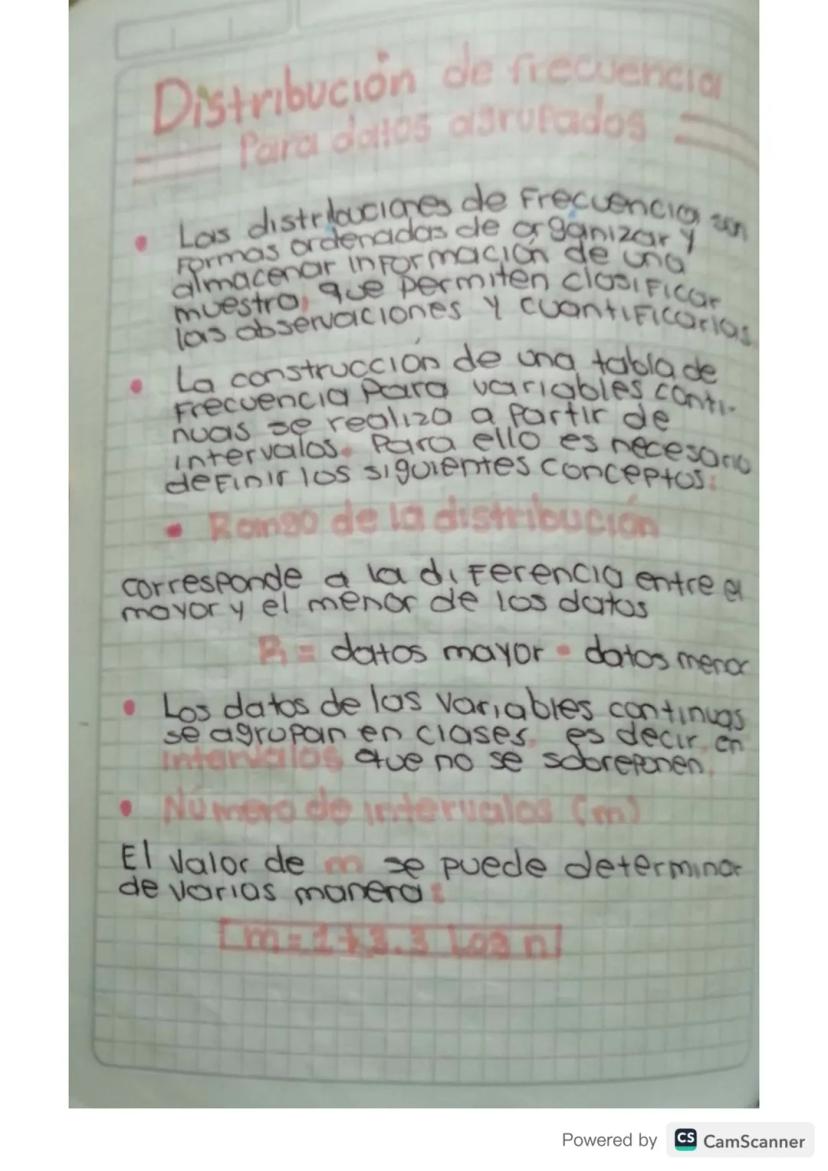 Distribución de frecuencia
Para datos agrupados
• Las distribuciones de Frecuencia son
Formas ordenadas de organizar y
almacenar información de una
muestra, que permiten clasificar
las observaciones y cuantificarlas
• La construcción de una tabla de
Frecuencia Para variables conti-
nuas se realiza a partir de
intervalos. Para ello es necesario
definir los siguientes conceptos:
• Rango de la distribución
corresponde a la diferencia entre el
mayor y el menor de los datos
R = datos mayor - datos menor
• Los datos de las variables continuas
se agrupan en clases, es decir, en
intervalos que no se sobreponen.
• Número de intervalos (m)
El valor de m se puede determinar
de varias manera:
m = 1 + 3.3 Log n
Powered by CS CamScanner